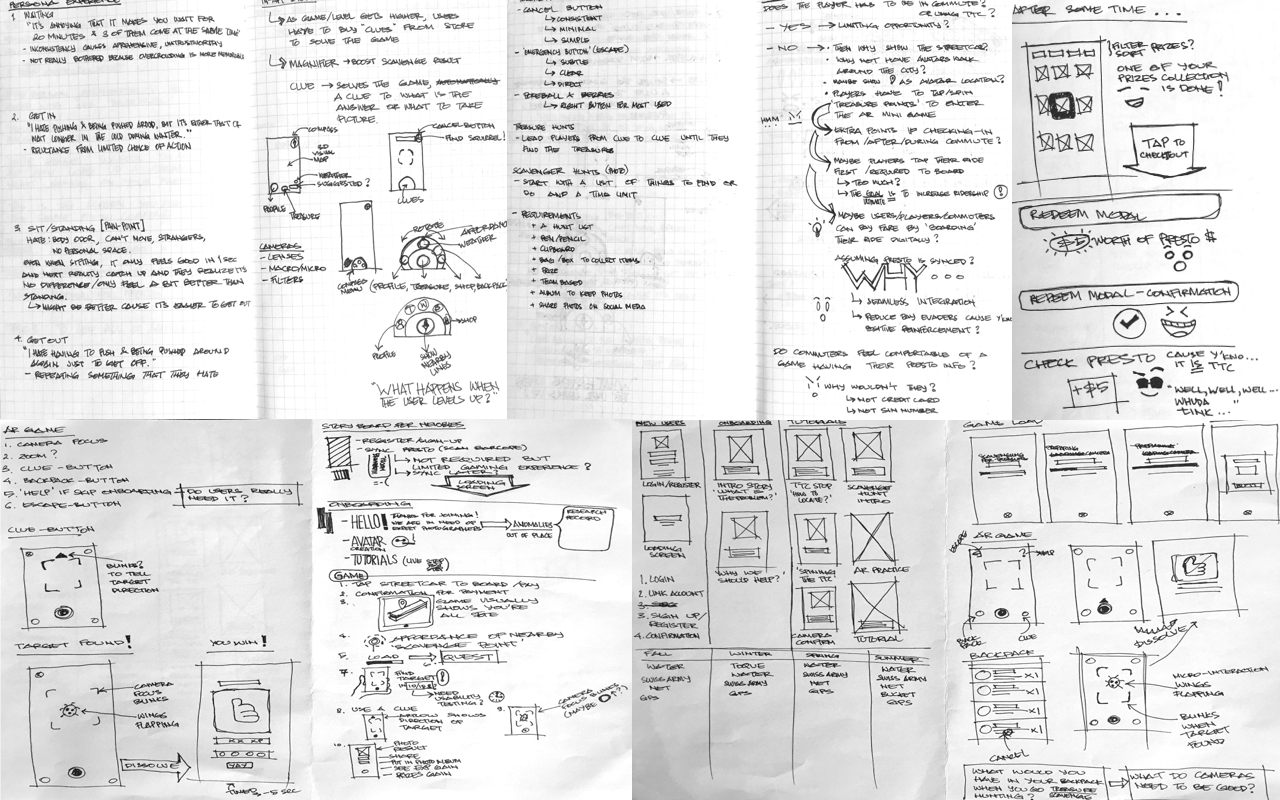 PERSONAL EXPERIENCE
1. WAITING
"IT'S ANNOYING THAT IT MAKES YOU WAIT FOR
20 MINUTES & 3 OF THEM COME AT THE SAME TIME"
- INCONSISTENCY CAUSES APPREHENSIVE, UNTRUSTWORTHY
- NOT REALLY BOTHERED BECAUSE OVERCROWDING IS MORE
2. GET IN
"I HATE PUSHING & BEING PUSHED AROUND, BUT IT'S EITHER THAT OR
WAIT LONGER IN THE COLD WINTER."
- RELUCTANCE FROM LIMITED CHOICE OF ACTION
3. SIT/STANDING [PAIN-POINT]
HATE: BODY ODOR, CAN'T MOVE, STRANGERS,
NO PERSONAL SPACE.
EVEN WHEN SITTING, IT ONLY FEELS GOOD IN 1 SEC
AND REALITY CATCH UP AND THEY REALIZE IT'S
NO DIFFERENCE/ONLY FEEL A BIT BETTER THAN
STANDING.
MIGHT BE BETTER CAUSE IT'S EASIER TO GET OUT
4. GET OUT
"I HATE HAVING TO PUSH & BEING PUSHED AROUND
AGAIN JUST TO GET OFF."
- REPEATING SOMETHING THAT THEY HATE
AS GAME/LEVEL GETS HIGHER, USERS
HAVE TO BUY "CLUES" FROM STORE
TO SOLVE THE GAME
MAGNIFIER → BOOST SCAVENGE RESULT
CLUE → SOLVES THE GAME, AUTOMATICALLY
A CLUE TO WHAT IS THE
ANSWER OR WHAT TO TAKE
PICTURE.
COMPASS
3D
VISUAL
MAP
WEATHER
SUGGESTED?
PROFILE
TREASURE
CANCEL BUTTON
FIND SQUIRREL!
CLUES
CAMERAS
- LENSES
- MACRO/MICRO
- FILTERS
ROTATE
AFFORDANCE
WEATHER
MENU (PROFILE, TREASURE, SHOP, BACKPACK)
SHOP
PROFILE
SHOW
NEARBY
LINES
"WHAT HAPPENS WHEN
THE USER LEVELS UP?"
- CANCEL BUTTON
CONSISTENT
MINIMAL
SIMPLE
- 'EMERGENCY BUTTON' (ESCAPE)
SUBTLE
CLEAR
DIRECT
- POKEBALL & BERRIES
RIGHT BUTTON FOR MOST USED
TREASURE HUNTS
- LEAD PLAYERS FROM CLUE TO CLUE UNTIL THEY
FIND THE TREASURE
SCAVENGER HUNTS (PHOTO)
- START WITH A LIST OF THINGS TO FIND OR
DO AND A TIME LIMIT
- REQUIREMENTS
+ A HUNT LIST
+ PEN/PENCIL
+ CLIPBOARD
+ BAG/BOX TO COLLECT ITEMS
+ PRIZE
+ TEAM BASED
+ ALBUM TO KEEP PHOTOS
+ SHARE PHOTOS ON SOCIAL MEDIA
DOES THE PLAYER HAS TO BE IN COMMUTE?
OR USING TTC?
- YES → LIMITING OPPORTUNITY?
- NO → THEN WHY SHOW THE STREETCAR?
WHY NOT HAVE AVATARS WALK
AROUND THE CITY?
MAYBE SHOW AS AVATAR LOCATION?
PLAYERS HAVE TO TAP/SPIN
'TREASURE POINTS' TO ENTER
THE AR MINI GAME
HMM
EXTRA POINTS IF CHECKING-IN
FROM/AFTER/DURING COMMUTE?
MAYBE PLAYERS TAP THEIR RIDE
FIRST/REQUIRED TO BOARD
TOO MUCH?
THE ULTIMATE GOAL IS TO INCREASE RIDERSHIP!
MAYBE USERS/PLAYERS/COMMUTERS
CAN PAY FARE BY 'BOARDING'
THEIR RIDE DIGITALLY?
ASSUMING PRESTO IS SYNCED?
WHY...
SEAMLESS INTEGRATION
REDUCE PAY EVADERS CAUSE Y'KNOW
POSITIVE REINFORCEMENT?
DO COMMUTERS FEEL COMFORTABLE OF A
GAME HAVING THEIR PRESTO INFO?
WHY WOULDN'T THEY?
NOT CREDIT CARD
NOT SIN NUMBER
AFTER SOME TIME...
FILTER PRIZES?
SORT
ONE OF YOUR
PRIZES COLLECTION
IS DONE!
TAP TO
CHECKOUT
REDEEM MODAL
$5 WORTH OF PRESTO $
REDEEM MODAL - CONFIRMATION
CHECK PRESTO
CAUSE Y'KNO...
IT IS TTC
+$5
"WELL, WELL, WELL...
WHUDA
TINK..."
AR GAME
1. CAMERA FOCUS
2. ZOOM?
3. CLUE-BUTTON
4. BACKPACK-BUTTON
5. 'HELP' IF SKIP ONBOARDING
DO USERS REALLY
NEED IT?
6. ESCAPE-BUTTON
CLUE-BUTTON
BLINKS?
TO TELL
TARGET
DIRECTION
TARGET FOUND!
YOU WIN!
CAMERA
FOCUS
BLINKS
WINGS
FLAPPING
DISSOLVE
YAY
STORYBOARD FOR HEROES
- REGISTER/SIGN-UP
- SYNC PRESTO (SCAN BARCODE)
NOT REQUIRED BUT
LIMITED GAMING EXPERIENCE?
SYNC LATER?
LOADING
SCREEN
ONBOARDING
- HELLO! THANKS FOR JOINING!
WE ARE IN NEED OF
EXPERT PHOTOGRAPHERS
ANOMALIES
OUT OF PLACE
RESEARCH
RECORD
- AVATAR
CREATION
- TUTORIALS
GAME
1. TAP STREETCAR TO BOARD/PAY
2. CONFIRMATION FOR PAYMENT
3. GAME VISUALLY
SHOWS YOU'RE
ALL SET
4. AFFORDANCE OF NEARBY
'SCAVENGE POINT'
5. LOAD
6. QUEST
7. FIND
TARGET
NEED
USABILITY
TESTING?
8. USE A CLUE
ARROW SHOWS
DIRECTION OF
TARGET
9.
CAMERA
FOCUS BLINKS
(MAYBE?)
10. PHOTO
RESULT
SHARE
PUT IN PHOTO ALBUM
SEE EXP GAIN
PRIZES GAIN
NEW USERS
ONBOARDING
TUTORIALS
LOGIN/REGISTER
INTRO STORY
'WHAT IS
THE PROBLEM?'
TTC STOP
'HOW TO
LOCATE?'
SCAVENGER
HUNT
INTRO
LOADING
SCREEN
'WHY WE
SHOULD HELP?'
'SPINNING'
THE TTC
AR PRACTICE
CAMERA
CONFIRM
TUTORIAL
1. LOGIN
2. LINK ACCOUNT
3. SIGN UP/
REGISTER
4. CONFIRMATION
FALL
WATER
SWISS ARMY
NET
GPS
WINTER
TOQUE
WATER
SWISS ARMY
GPS
SPRING
WATER
SWISS ARMY
NET
GPS
SUMMER
WATER
SWISS ARMY
NET
BUCKET
GPS
GAME LOAD
ESCAPE
AR GAME
BACKPACK
CLUE
DISSOLVE
BACKPACK
×1
×1
×1
×1
CANCEL
MICRO-INTERACTION
WINGS
FLAPPING
BLINKS
WHEN
TARGET
FOUND
WHAT WOULD YOU
HAVE IN YOUR BACKPACK
WHEN YOU GO TREASURE
HUNTING? SCAVENGING
WHAT DO CAMERAS
NEED TO BE GOOD?